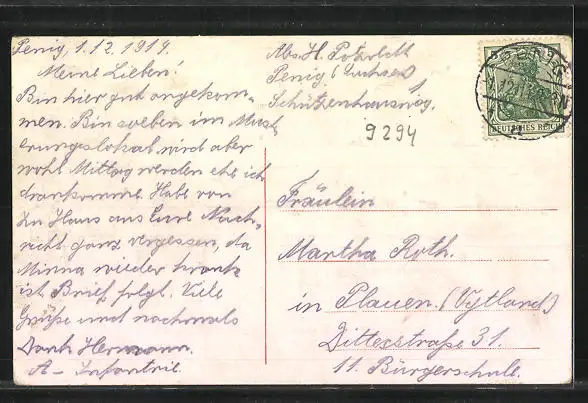 Penig, 1.12.1914.
Meine Lieben!
Bin hier gut angekom-
men. Bin soeben im Must-
erungslokal, wird aber
wohl Mittag werden ehe ich
drankomme. Habe von
zu Haus aus Eure Nach-
richt ganz vergessen, da
Minna wieder krank
ist. Brief folgt. Viele
Grüße und nochmals
Dank Hermann.
A - Infantrie.
Abs. H.
Penig (Sachsen)
9294
DEUTSCHES REICH
Fräulein
Martha Roth.
in Plauen. (Vgtland)
Dittesstraße 31.
11. Bürgerschule.